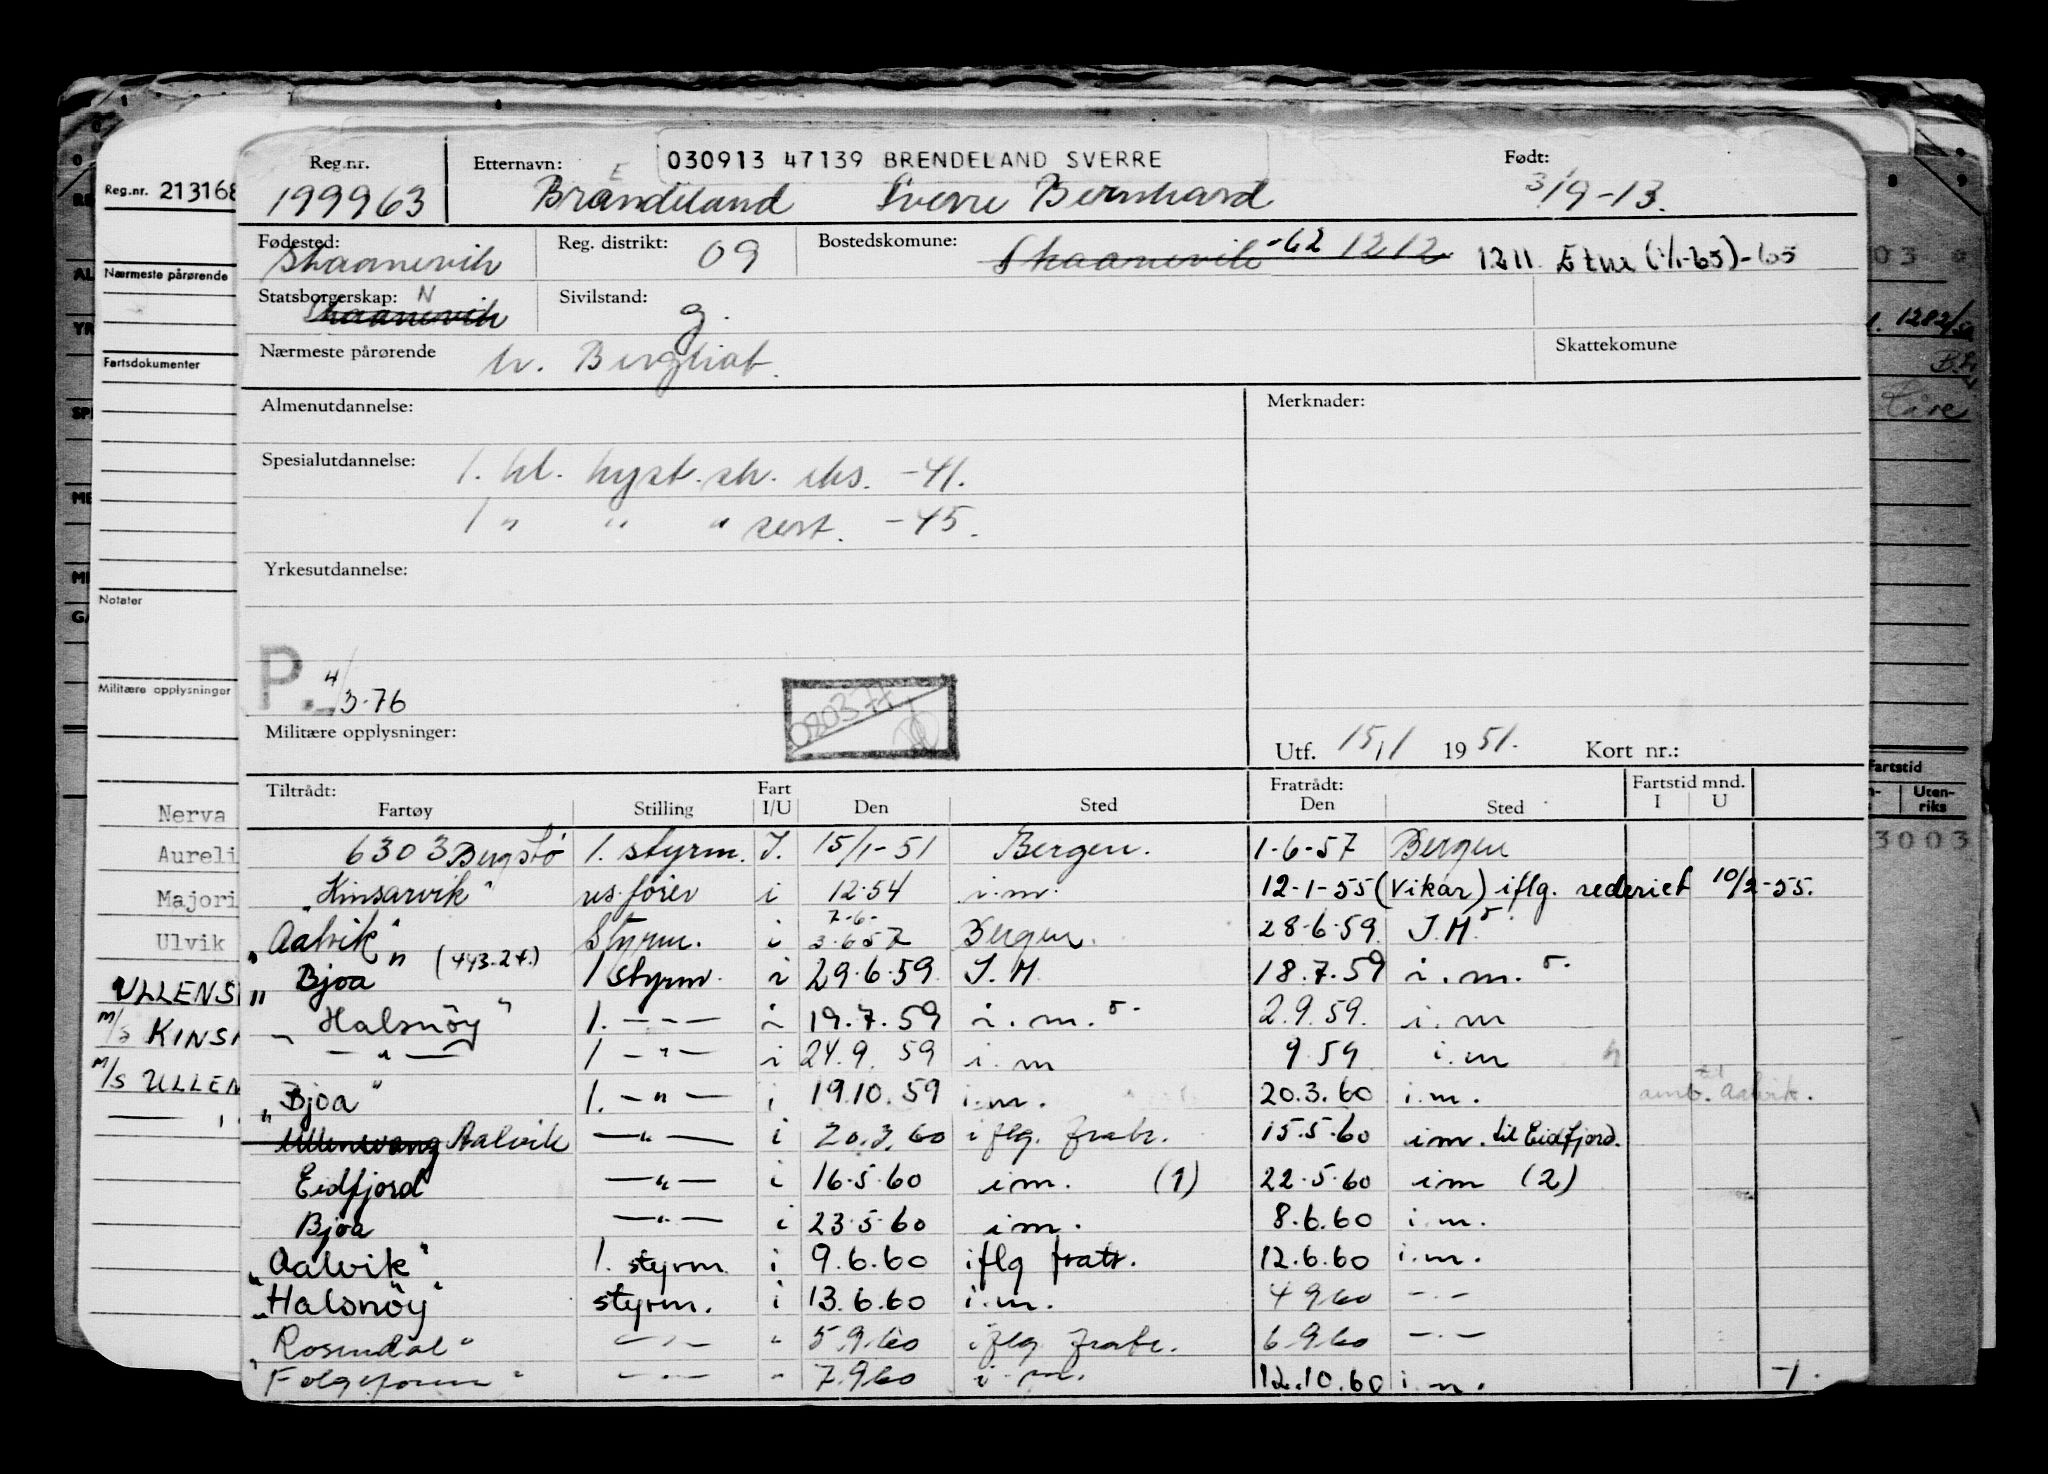 Reg.nr. Etternavn: 030913 47139 BRENDELAND SVERRE Født:
199963 Brandeland E Sverre Bernhard 3/9-13.
Fødested: Skaanevik Reg. distrikt: 09 Bostedskomune: Skaanevik -62 1212 1211 Etne (1/1-65)-65
Statsborgerskap: N Skaanevik Sivilstand: g.
Nærmeste pårørende h. Bergliot. Skattekomune
Almenutdannelse: Merknader:
Spesialutdannelse: 1. kl. kyst.sk. eks. -41.
1 " " " sert. -45.
Yrkesutdannelse:
P. 4/3-76
080377
Militære opplysninger: Utf. 15/1 1951. Kort nr.:
Tiltrådt: Fart Fratrådt: Fartstid mnd.
Fartøy Stilling I/U Den Sted Den Sted I U
6303 Bergstø 1. styrm. I. 15/1-51 Bergen. 1-6-57 Bergen
"Kinsarvik" i 12.54 i.m. 12-1-55 (Vikar) iflg. rederiet 10/2-55.
"Aalvik" Styrm. i 3.6.57 7-6- Bergen. 28-6-59. I.H.
"Bjoa" (443.24.) 1 styrm. i 29.6.59. I.H. 18.7.59 i.m.
"Halsnöy" 1. --- i 19.7.59 i.m. 2.9.59. i.m
—"— 1 —"— i 24.9. 59 i.m 9.59 i.m
"Bjoa" 1. —"— i 19.10.59 i.m. 20.3.60 i.m. til Aalvik.
Ullensvang Aalvik —"— i 20.3.60 iflg. fratr. 15.5.60 im. til Eidfjord.
Eidfjord —"— i 16.5.60 im. (1) 22.5.60 im (2)
Bjoa —"— i 23.5.60 im. 8.6.60 i.m.
"Aalvik" 1. styrm. i 9.6.60 iflg fratr. 12.6.60 i.m.
"Halsnöy" styrm. i 13.6.60 i.m. 4.9.60 —"—
"Rosendal" —"— " 5.9.60 iflg fratr. 6.9.60 —"—
"Folgefonn" —"— " 7.9.60 i.m. 12.10.60 i.m. -1.
Reg.nr. 213168
Nærmeste pårørende
Fartsdokumenter
Notater
Militære opplysninger
Nerva
Aureli
Majori
Ulvik
ULLENS
M/S KINS
M/S ULLEN
03
1282/
Fartstid
Uten-
riks
3003